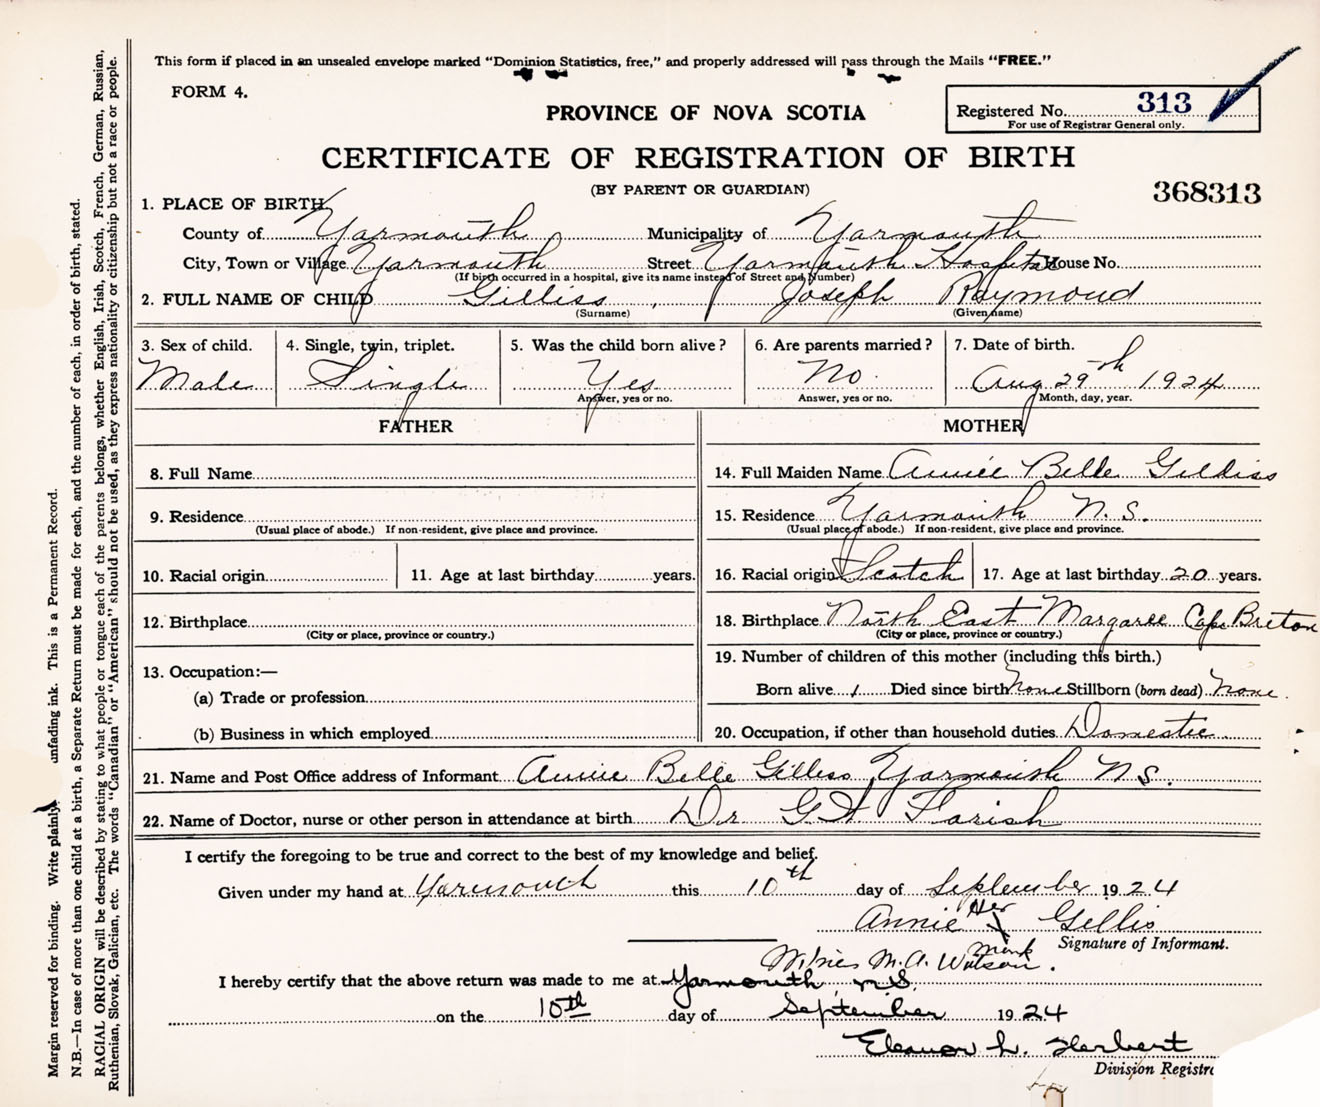 This form if placed in an unsealed envelope marked "Dominion Statistics, free," and properly addressed will pass through the Mails "FREE."
FORM 4.
PROVINCE OF NOVA SCOTIA
Registered No. 313
For use of Registrar General only.
CERTIFICATE OF REGISTRATION OF BIRTH
(BY PARENT OR GUARDIAN)
368313
1. PLACE OF BIRTH
County of Yarmouth Municipality of Yarmouth
City, Town or Village Yarmouth Street Yarmouth Hospital House No.
(If birth occurred in a hospital, give its name instead of Street and Number)
2. FULL NAME OF CHILD Gilliss, Joseph Raymond
(Surname) (Given name)
3. Sex of child. 4. Single, twin, triplet. 5. Was the child born alive? 6. Are parents married? 7. Date of birth.
Male Single Yes No. Aug 29th 1924
Answer, yes or no. Answer, yes or no. Month, day, year.
FATHER MOTHER
8. Full Name 14. Full Maiden Name Annie Belle Gilliss
9. Residence 15. Residence Yarmouth N.S.
(Usual place of abode.) If non-resident, give place and province. (Usual place of abode.) If non-resident, give place and province.
10. Racial origin 11. Age at last birthday years. 16. Racial origin Scotch 17. Age at last birthday 20 years.
12. Birthplace 18. Birthplace North East Margaree Cape Breton
(City or place, province or country.) (City or place, province or country.)
13. Occupation:— 19. Number of children of this mother (including this birth.)
(a) Trade or profession Born alive 1 Died since birth None Stillborn (born dead) None.
(b) Business in which employed 20. Occupation, if other than household duties Domestic
21. Name and Post Office address of Informant Annie Belle Gilliss Yarmouth N.S.
22. Name of Doctor, nurse or other person in attendance at birth Dr G A Farish
I certify the foregoing to be true and correct to the best of my knowledge and belief.
Given under my hand at Yarmouth this 10th day of September 1924
Annie Her X Gillis
Mark
Signature of Informant.
M. A. Watson.
I hereby certify that the above return was made to me at Yarmouth N.S.
on the 10th day of September 1924
Eleanor L. Herbert
Division Registr
Margin reserved for binding. Write plainly unfading ink. This is a Permanent Record.
N.B.—In case of more than one child at a birth, a Separate Return must be made for each, and the number of each, in order of birth, stated.
RACIAL ORIGIN will be described by stating to what people or tongue each of the parents belongs, whether English, Irish, Scotch, French, German, Russian,
Ruthenian, Slovak, Galician, etc. The words "Canadian" or "American" should not be used, as they express nationality or citizenship but not a race or people.